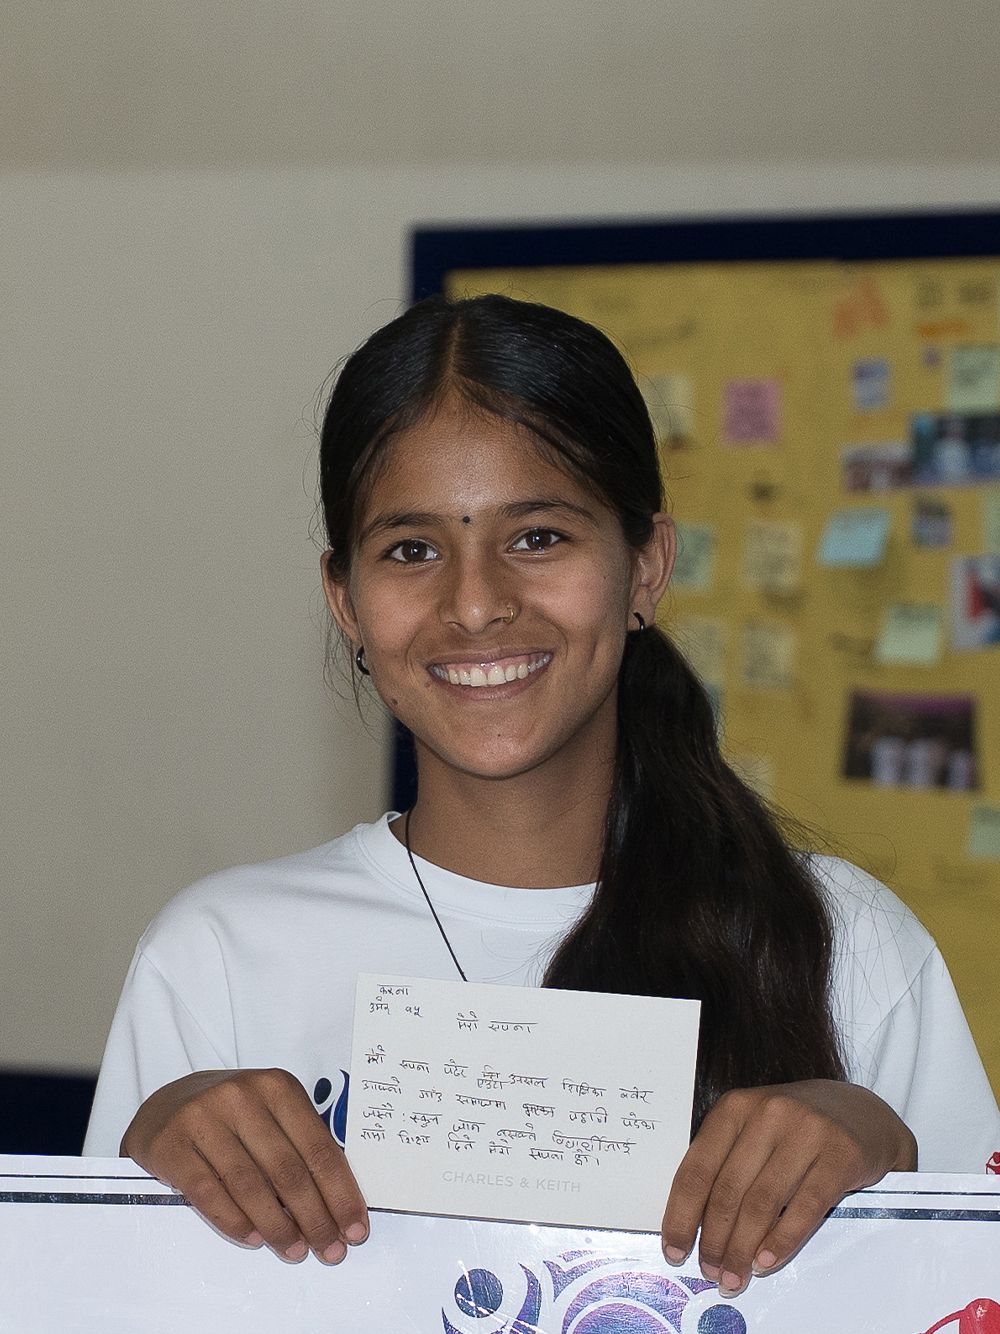 करना
उमेर १५
मेरो सपना
मेरो सपना पढेर एउटा असल शिक्षिका बनेर
आफ्नो गाउँ समाजमा पढाउने पढेका
जस्तै : स्कुल जान नसक्ने विद्यार्थीलाई
राम्रो शिक्षा दिने मेरो सपना हो।
CHARLES & KEITH